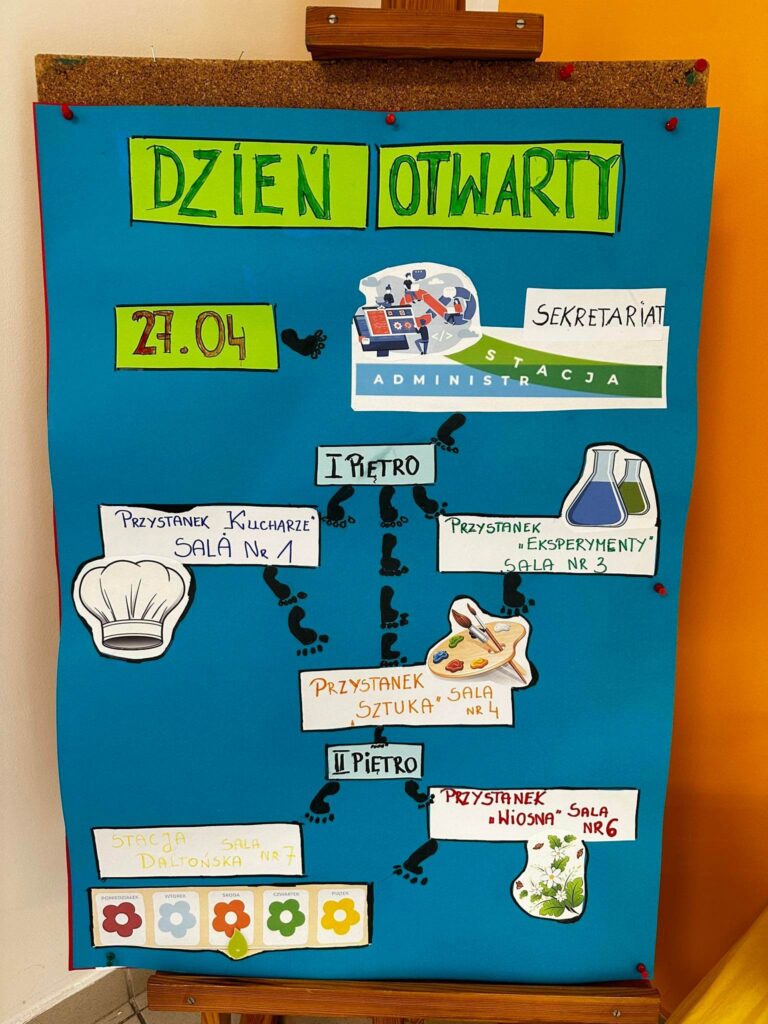 DZIEŃ OTWARTY
27.04
SEKRETARIAT
ADMINISTR STACJA
I PIĘTRO
PRZYSTANEK KUCHARZE"
SALA NR 1
PRZYSTANEK
„EKSPERYMENTY"
SALA NR 3
PRZYSTANEK SALA
„SZTUKA" NR 4
II PIĘTRO
PRZYSTANEK
„WIOSNA" SALA
NR 6
STACJA SALA
DALTOŃSKA NR 7
PONIEDZIAŁEK WTOREK ŚRODA CZWARTEK PIĄTEK